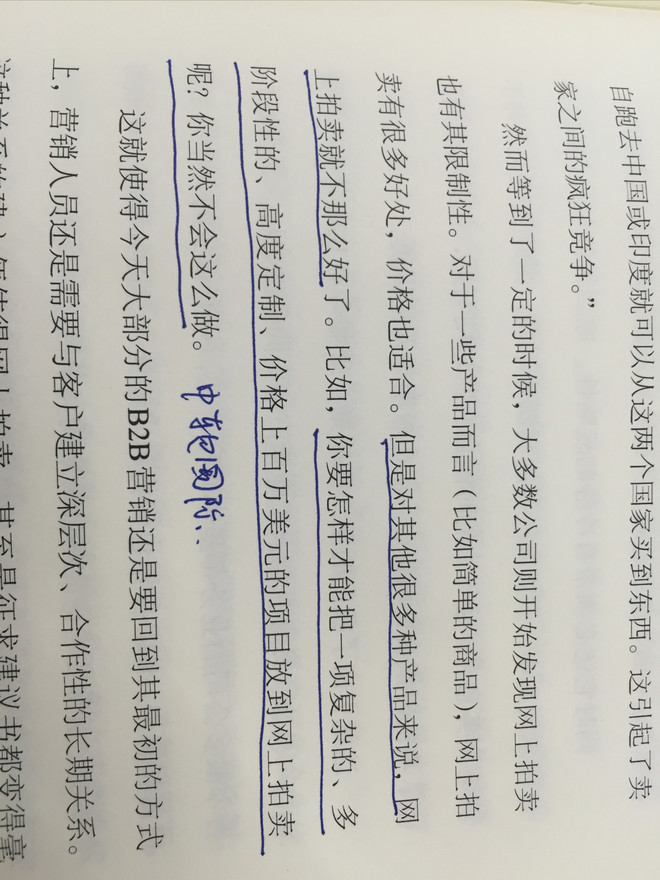 自跑去中国或印度就可以从这两个国家买到东西。这引起了卖
家之间的疯狂竞争。”
然而等到了一定的时候，大多数公司则开始发现网上拍卖
也有其限制性。对于一些产品而言（比如简单的商品），网上拍
卖有很多好处，价格也适合。但是对其他很多种产品来说，网
上拍卖就不那么好了。比如，你要怎样才能把一项复杂的、多
阶段性的、高度定制、价格上百万美元的项目放到网上拍卖
呢？你当然不会这么做。
这就使得今天大部分的B2B营销还是要回到其最初的方式
上，营销人员还是需要与客户建立深层次、合作性的长期关系。
网上拍卖，甚至是征求建议书都变得毫